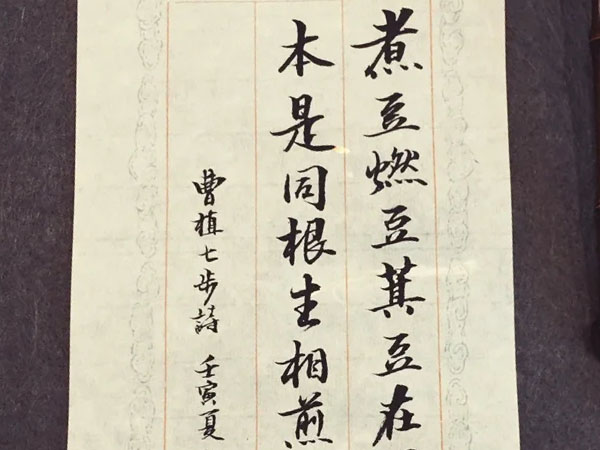 煮豆燃豆萁豆在
本是同根生相煎
曹植七步詩 壬寅夏